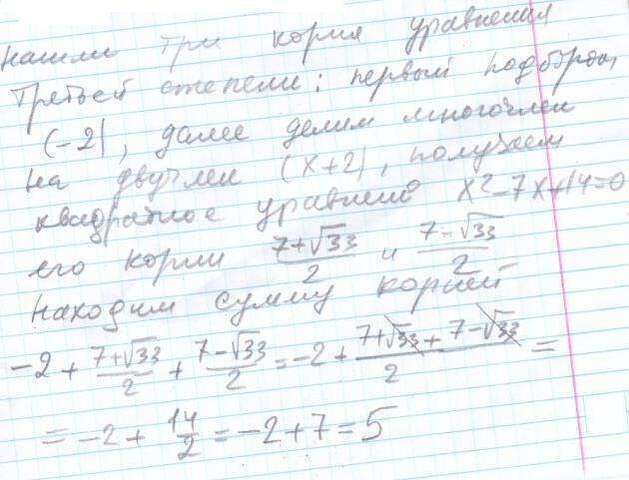 нашли три корня уравнения
третьей степени: первый подбором,
(-2), далее делим многочлен
на двучлен (x+2), получаем
квадратное уравнение x²-7x+14=0
его корни (7+√33)/2 и (7-√33)/2
находим сумму корней
-2 + (7+√33)/2 + (7-√33)/2 = -2 + (7+√33+7-√33)/2 =
= -2 + 14/2 = -2+7=5